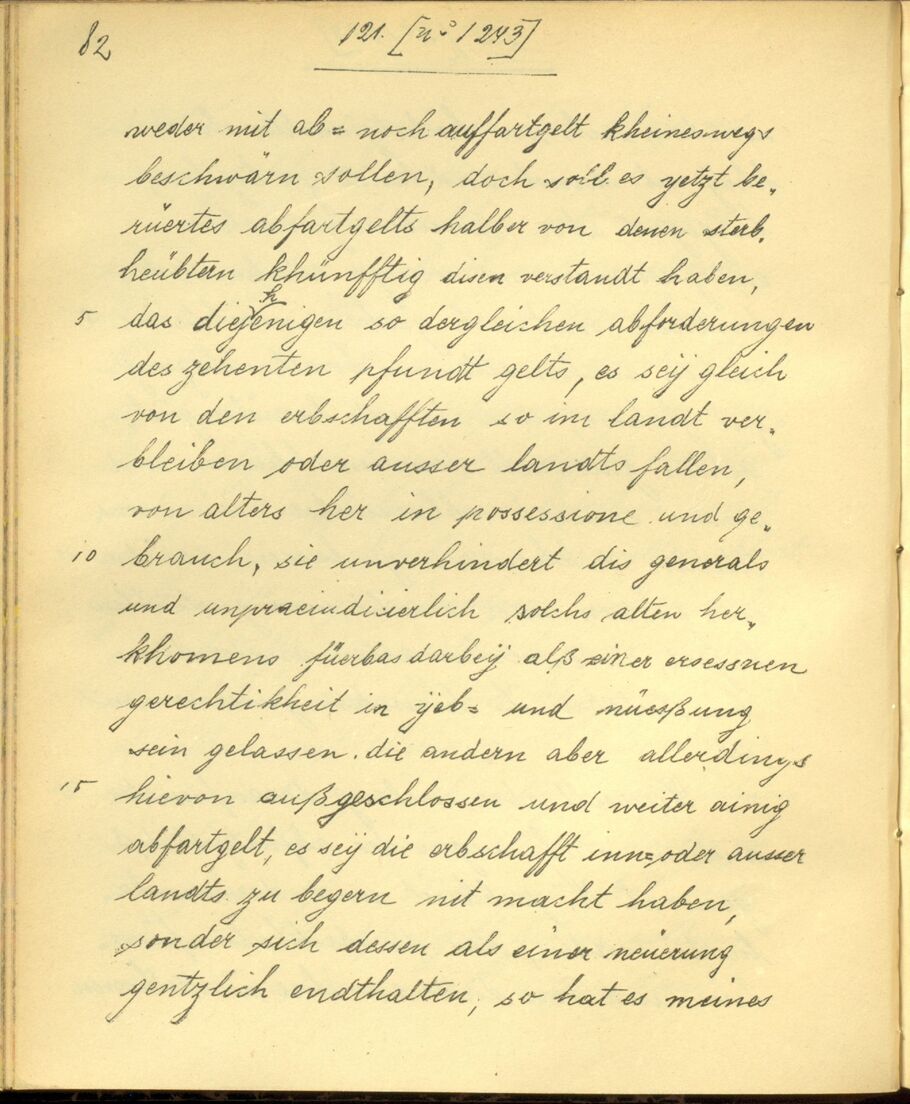 82
121. [nº 1243]
weder mit ab= noch auffartgelt kheineswegs
beschwärn sollen, doch soll es yetzt be„
rüertes abfartgelts halber von denen sterb„
heübtern khünfftig disen verstandt haben,
5 das diejhenigen so dergleichen abforderungen
des zehenten pfundt gelts, es seÿ gleich
von den erbschafften so im landt ver„
bleiben oder ausser landts fallen,
von alters her in possessione und ge„
10 brauch, sie unverhindert dis generals
und unpraeiudicierlich solchs alten her„
khomens füerbas darbeÿ alß einer ersessnen
gerechtikheit in ÿeb= und nüesßung
sein gelassen. die andern aber allerdings
15 hievon außgeschlossen und weiter ainig
abfartgelt, es seÿ die erbschafft inn= oder ausser
landts zu begern nit macht haben,
sonder sich dessen als einer neüerung
gentzlich endthalten, so hat es meines